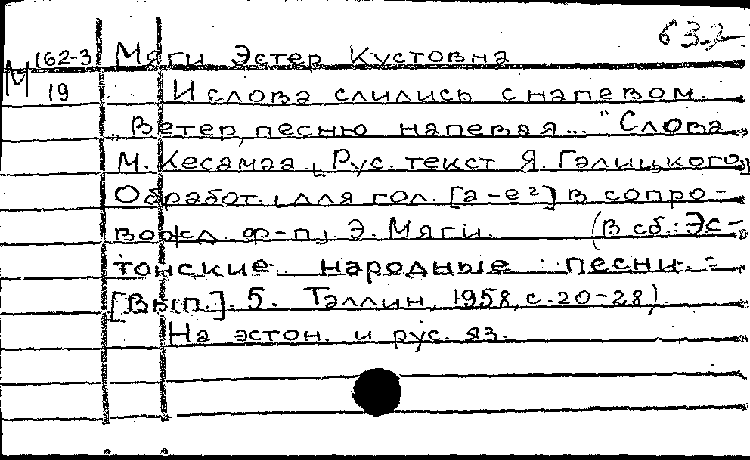 632
М 162-3 Мяги Эстер Кустовна
19 И слова слились с напевом.
"Ветер, песню напевая..." Слова
М. Кесамаа, Рус. текст Я. Галицкого,
Обработ. для гол. [a-e²] в сопро-
вожд. ф-п. Э. Мяги. (В сб.: Эс-
тонские народные песни.
[Вып.]. 5. Таллин, 1958, с. 20-28)
На эстон. и рус. яз.